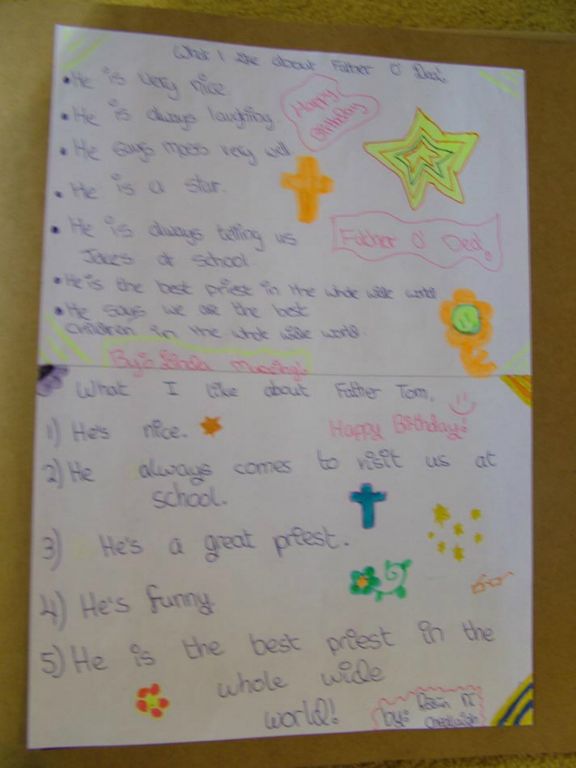 What I like about Father O' Dea!
• He is very nice.
• He is always laughing.
Happy
Birthday
• He says mass very well.
• He is a star.
• He is always telling us
Jokes at school.
Father O' Dea!
• He is the best priest in the whole wide world.
• He says we are the best
children in the whole wide world.
By:
What I like about Father Tom.
Happy Birthday!
1) He's nice.
2) He always comes to visit us at
school.
3) He's a great priest.
4) He's funny
5) He is the best priest in the
whole wide
world!
by: Róisín Ní